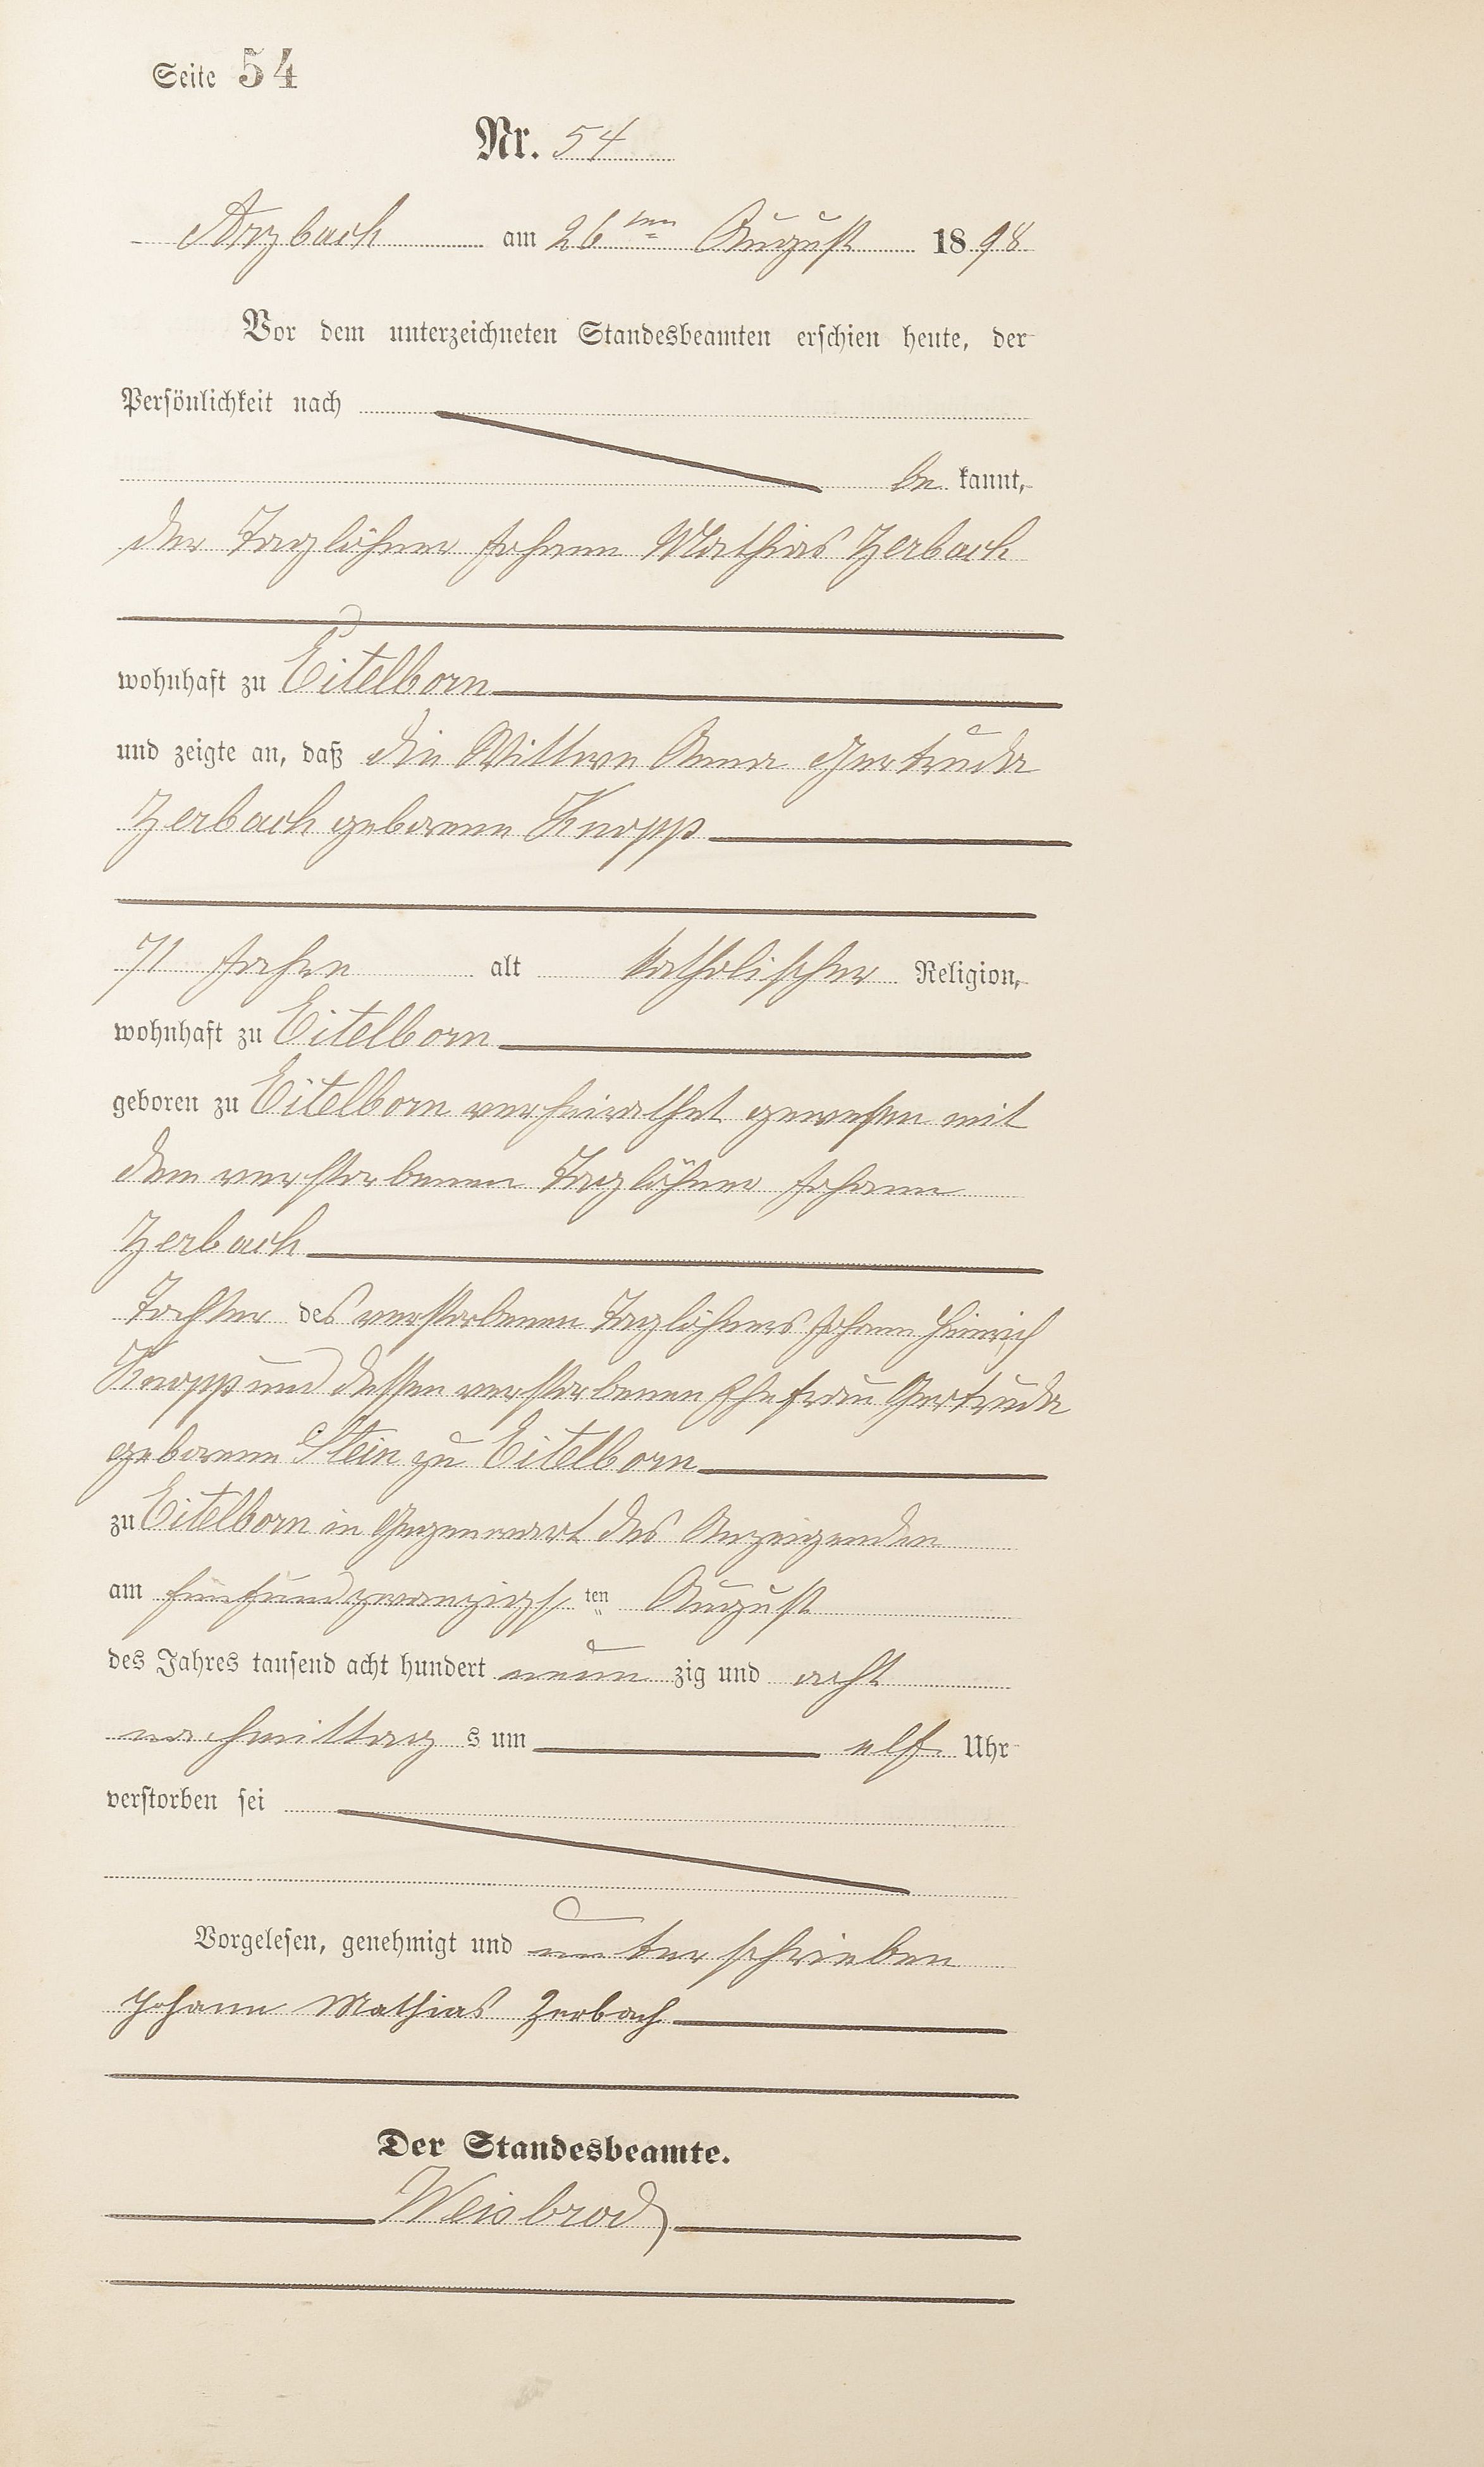 Seite 54
Nr. 54
Arzbach am 26ten August 1898
Vor dem unterzeichneten Standesbeamten erschien heute, der
Persönlichkeit nach
be kannt,
der Taglöhner Johann Mathias Zerbach
wohnhaft zu Eitelborn
und zeigte an, daß die Wittwe Anna Gertruda
Zerbach geborene Knopp
71 Jahre alt katholischer Religion,
wohnhaft zu Eitelborn
geboren zu Eitelborn verheirathet gewesen mit
dem verstorbenen Taglöhner Johann
Zerbach
Tochter des verstorbenen Taglöhners Johann Heinrich
Knopp und dessen verstorbenen Ehefrau Gertruda
geborene Stein zu Eitelborn
zu Eitelborn in Gegenwart des Anzeigenden
am fünfundzwanzigs ten August
des Jahres tausend acht hundert neun zig und acht
nachmittag s um elf Uhr
verstorben sei
Vorgelesen, genehmigt und unterschrieben
Johann Mathias Zerbach
Der Standesbeamte.
Weisbrod